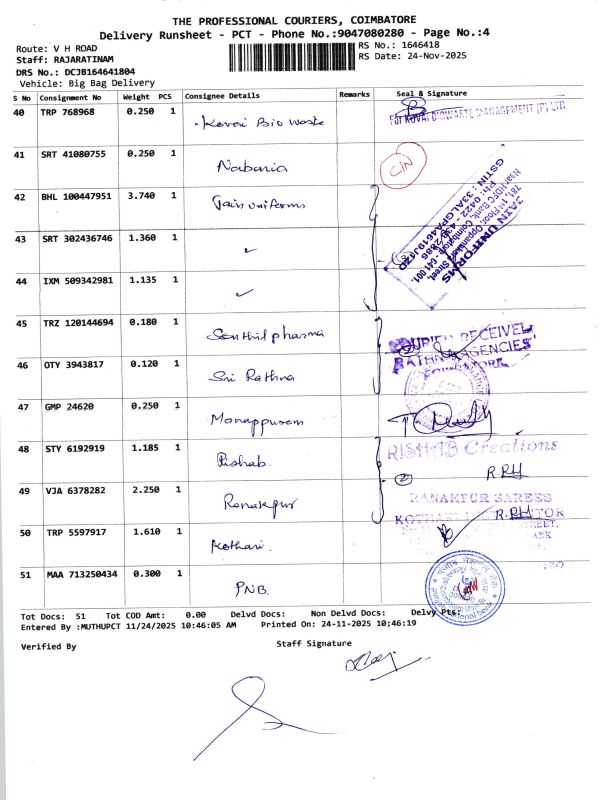 THE PROFESSIONAL COURIERS, COIMBATORE
Delivery Runsheet - PCT - Phone No.:9047080280 - Page No.:4
Route: V H ROAD
RS No.: 1646418
Staff: RAJARATINAM
RS Date: 24-Nov-2025
DRS No.: DCJB164641804
Vehicle: Big Bag Delivery
S No Consignment No Weight PCS Consignee Details Remarks Seal & Signature
40 TRP 768968 0.250 1 Kovai Bio Waste
For KOVAI BIOWASTE MANAGEMENT (P) LTD
41 SRT 41080755 0.250 1
42 BHL 100447951 3.740 1 Jain Uniforms
JAIN UNIFORMS
781, II Floor, Oppanakara Street,
Near HDFC Bank, Coimbatore - 641 001.
GSTIN : 33ALGPA4619J1ZD
43 SRT 302436746 1.360 1 ✓
44 IXM 509342981 1.135 1 ✓
45 TRZ 120144694 0.180 1 Senthil pharma
COURIER RECEIVED
RATHNA AGENCIES
COIMBATORE
46 OTY 3943817 0.120 1 Sri Rathna
47 GMP 24620 0.250 1 Manappuram
48 STY 6192919 1.185 1 Rishab.
RISHAB Creations
R.RH
49 VJA 6378282 2.250 1 Ranakpur
RANAKPUR SAREES
R.RH
50 TRP 5597917 1.610 1 Kothari.
51 MAA 713250434 0.300 1 PNB.
Tot Docs: 51 Tot COD Amt: 0.00 Delvd Docs: Non Delvd Docs: Delvy Pts:
Entered By :MUTHUPCT 11/24/2025 10:46:05 AM Printed On: 24-11-2025 10:46:19
Verified By
Staff Signature